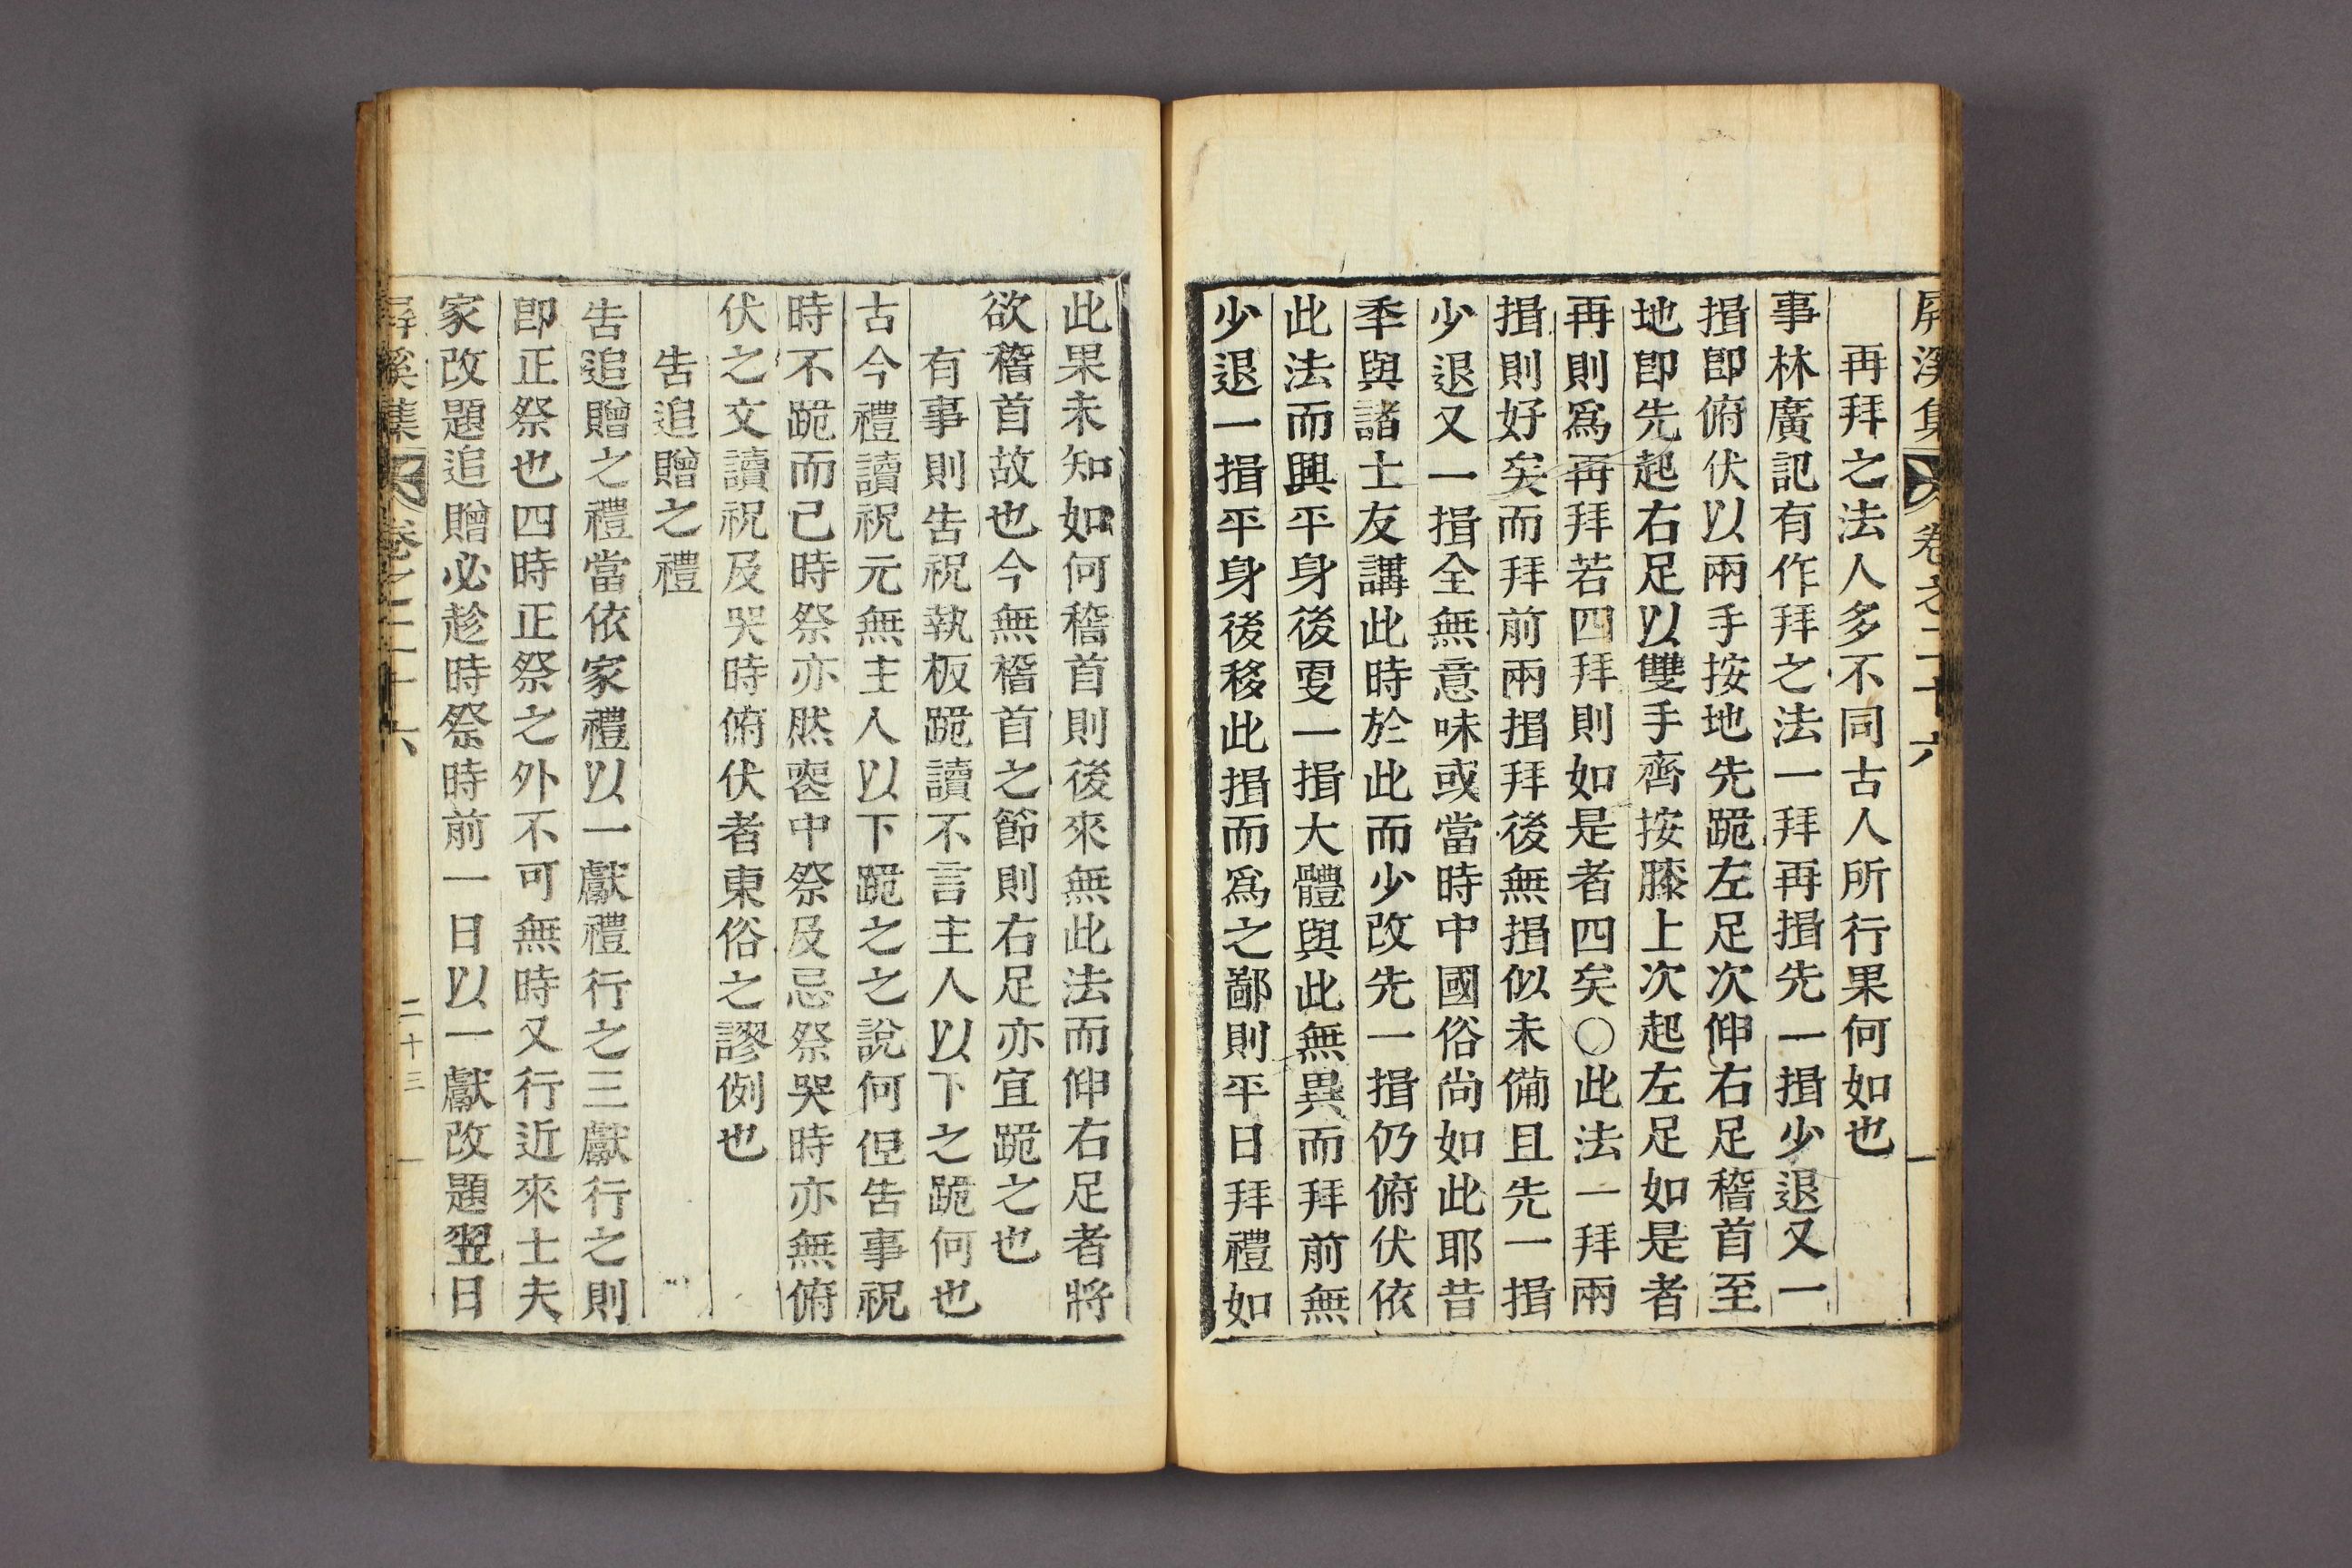 屏溪集 卷之二十六
再拜之法人多不同古人所行果何如也
事林廣記有作拜之法一拜再揖先一揖少退又一
揖卽俯伏以兩手按地先跪左足次伸右足稽首至
地卽先起右足以雙手齊按膝上次起左足如是者
再則爲再拜若四拜則如是者四矣○此法一拜兩
揖則好矣而拜前兩揖拜後無揖似未備且先一揖
少退又一揖全無意味或當時中國俗尙如此耶昔
季與諸士友講此時於此而少改先一揖仍俯伏依
此法而興平身後更一揖大體與此無異而拜前無
少退一揖平身後移此揖而爲之鄙則平日拜禮如
此果未知如何稽首則後來無此法而伸右足者將
欲稽首故也今無稽首之節則右足亦宜跪之也
有事則告祝執板跪讀不言主人以下之跪何也
古今禮讀祝元無主人以下跪之之說何但告事祝
時不跪而已時祭亦然喪中祭及忌祭哭時亦無俯
伏之文讀祝及哭時俯伏者東俗之謬例也
告追贈之禮
告追贈之禮當依家禮以一獻禮行之三獻行之則
卽正祭也四時正祭之外不可無時又行近來士夫
家改題追贈必趁時祭時前一日以一獻改題翌日
屏溪集 卷之二十六 二十三